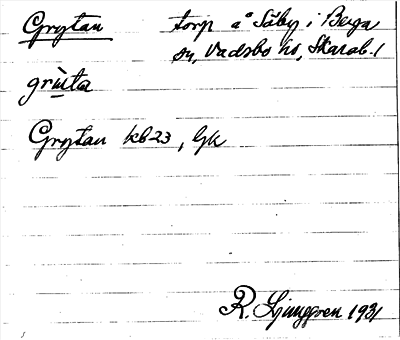 Grytan torp å Säby i Berga
sn, Vadsbo hd, Skarab. l
grùta
Grytan kb23, Gk
R. Ljunggren 1931